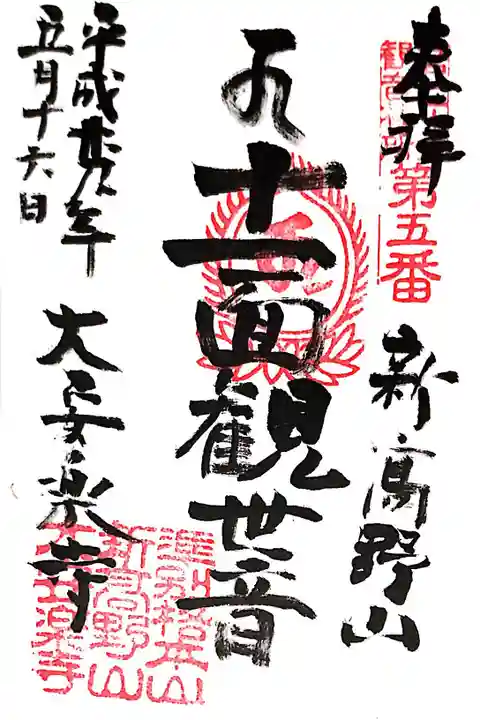 奉拝
第五番
新高野山
十一面観世音
平成廿九年
五月十六日
大安楽寺
準別格本山
新高野山
大安楽寺